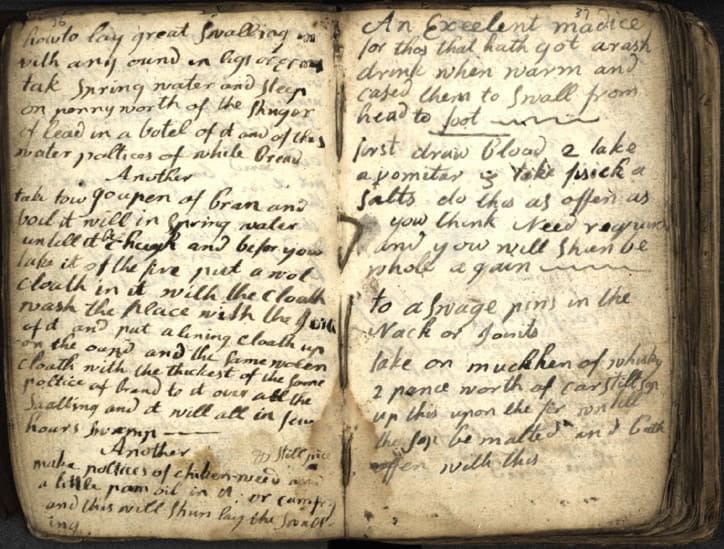 36
how to lay great Swalling
with any ound in ligs or
tak Spring water and steep
on pennyworth of the Shuger
of lead in a botel of it and of this
water poltices of while Bread
Another
take tow goupen of bran and
boil it will in Spring water
untill it be though and befor you
take it of the fire put a wol
cloath in it with the cloath
wash the place with the
of it and put a lining cloath up
on the ound and the same wolen
cloath with the thickest of the same
poltice of brand to it over all the
Swalling and it will all in few
hours Swamp
Another
make poltices of chiken-weed
a little pam oil in it or
and this will Shun lay the Swall
ing
37
An Excelent madice
for thos that hath got a rash
drink when warm and
cased them to Swall from
head to foot
first draw blood 2 take
a vomiter 3 take psick a
salts do this as offen as
you think Need requires
and you will Shun be
whole again
to aswage pins in the
Nack or Joints
take on muchken of whisky
2 pence worth of Carstill sop
up this upon the fir untill
the sop be malted and bath
offen with this